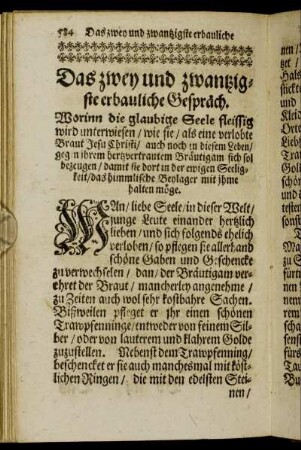 584 Das zwey und zwantzigste erbauliche
Das zwey und zwantzig-
ste erbauliche Gespräch.
Worinn die glaubige Seele fleissig
wird unterwiesen / wie sie / als eine verlobte
Braut Jesu Christi / auch noch in diesem Leben /
geg n ihrem hertzvertrautem Bräutigam sich sol
bezeugen / damit sie dort in der ewigen Seelig-
keit / das himmlische Beylager mit jhme
halten möge.
WAn / liebe Seele / in dieser Welt /
junge Leute einander hertzlich
lieben / und sich folgends ehelich
verloben / so pflegen sie allerhand
schöne Gaben und Geschencke
zu verwechselen / dan / der Bräutigam ver-
ehret der Braut / mancherley angenehme /
zu Zeiten auch wol sehr kostbahre Sachen.
Bißweilen pfleget er jhr einen schönen
Trawpfenninge / entweder von seinem Sil-
ber / oder von lauterem und klahrem Golde
zuzustellen. Nebenst dem Trawpfenning /
beschencket er sie auch manchesmal mit köst-
lichen Ringen / die mit den edelsten Stei-
nen /